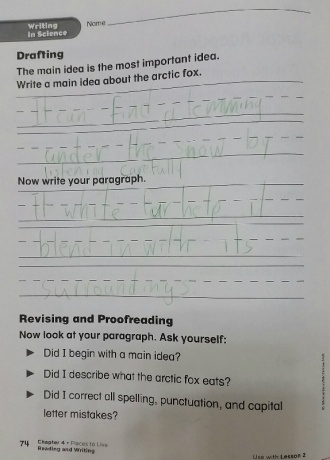 Writing
In Science
Name
Drafting
The main idea is the most important idea.
Write a main idea about the arctic fox.
It can find a lemming
under the snow by
listening carefully
Now write your paragraph.
It white fur help it
blend in with its
surroundings
Revising and Proofreading
Now look at your paragraph. Ask yourself:
▶ Did I begin with a main idea?
▶ Did I describe what the arctic fox eats?
▶ Did I correct all spelling, punctuation, and capital
letter mistakes?
74 Chapter 4 • Places to Live
Reading and Writing
Use with Lesson 2